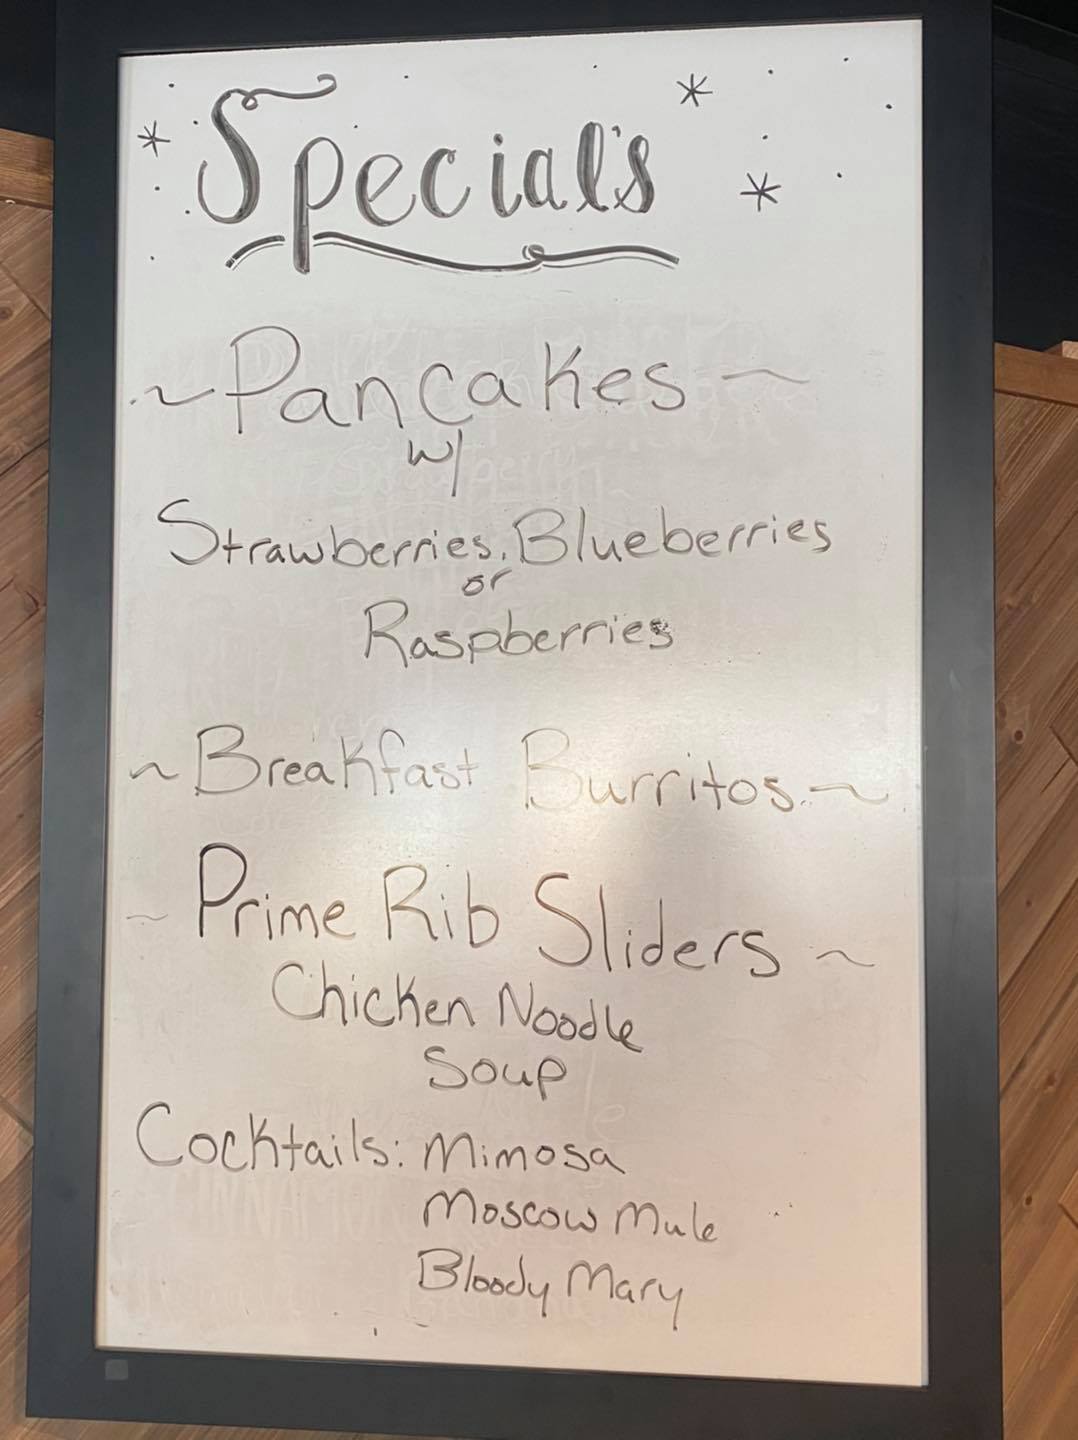 Special's
~Pancakes~
w/
Strawberries, Blueberries
or
Raspberries
~Breakfast Burritos~
~Prime Rib Sliders~
Chicken Noodle
Soup
Cocktails: Mimosa
Moscow Mule
Bloody Mary